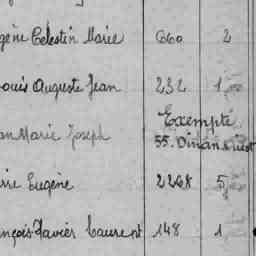 gène Célestin Marie 660 2
ouis Auguste Jean 232 1
Exempté
an Marie Joseph 55. Dinan
rre Eugène 2268 5
nçois Xavier Laurent 148 1